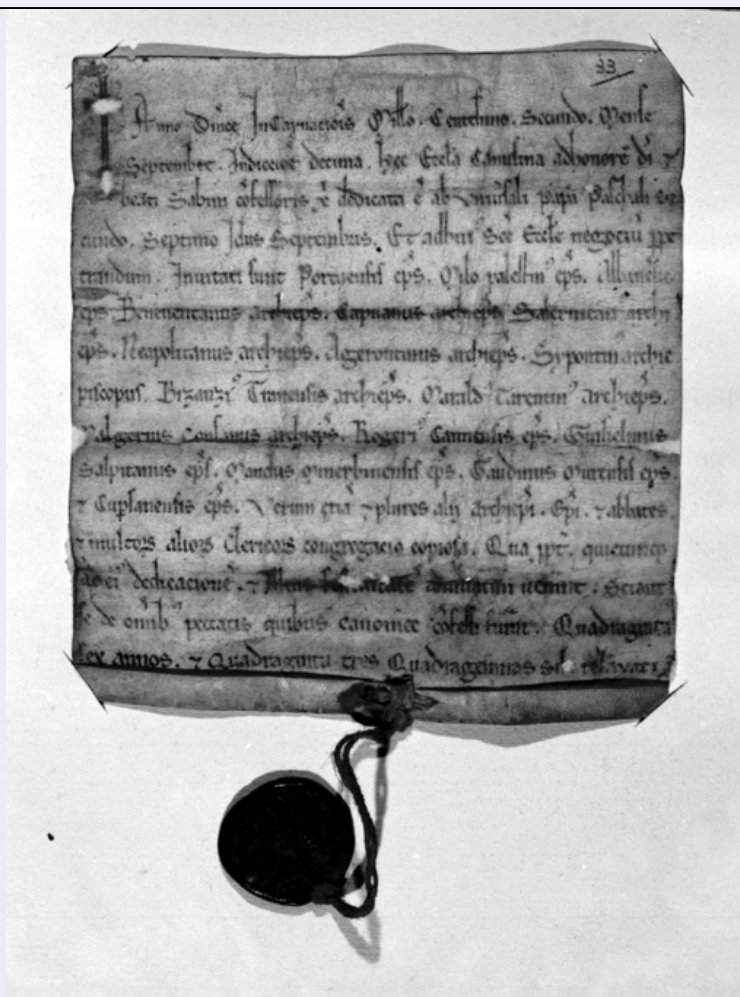 33
Anno Dn̄ice Incarnacioīs Millo. Centesimo. Secundo. Mense
Septembr̄. Indiccioē decima. hec Eccl̄a Canusina ad honorē dī ⁊
beati Sabini cōfessoris x̄ dedicata ē ab vniu̅sali papa Paschali se
cundo. Septimo Idus Septembris. Et ad huiꝰ Sc̄e Eccl̄e negociū ꝑpe
trandum. Inuitati sunt Portuensis ep̄s. Milo palestinꝰ ep̄s. Albanensis
ep̄s. Beneuentanus archiep̄s. Capuanus archiep̄s Salernitanꝰ archi
ep̄s. Neapolitanus archiep̄s. Ageronteanus archiep̄s. Sypontinꝰ archie
piscopus. Bizanziꝰ Tranensis archiep̄s. Tarentinꝰ archiep̄s.
archiep̄s. Rogeriꝰ Cannensis ep̄s. Guilielmus
Salpitanus ep̄s. Mandus Minerbinensis ep̄s. Gaudinus ep̄s
⁊ ep̄s. Verum etiā ⁊ plures alij archiep̄i. Ep̄i. ⁊ abbates
⁊ multoꝝ alioꝝ Clericoꝝ congregacio copiosa. Qua ꝓpt̄. quicunqꝫ
ad eiꝰ dedicacionē. ⁊ uenerint: Sciant
se de omībꝰ peccatis quibus canonice cōfessi fuerint. Quadraginta
sex annos. ⁊ Quadraginta tres Quadragesimas sibi relaxari